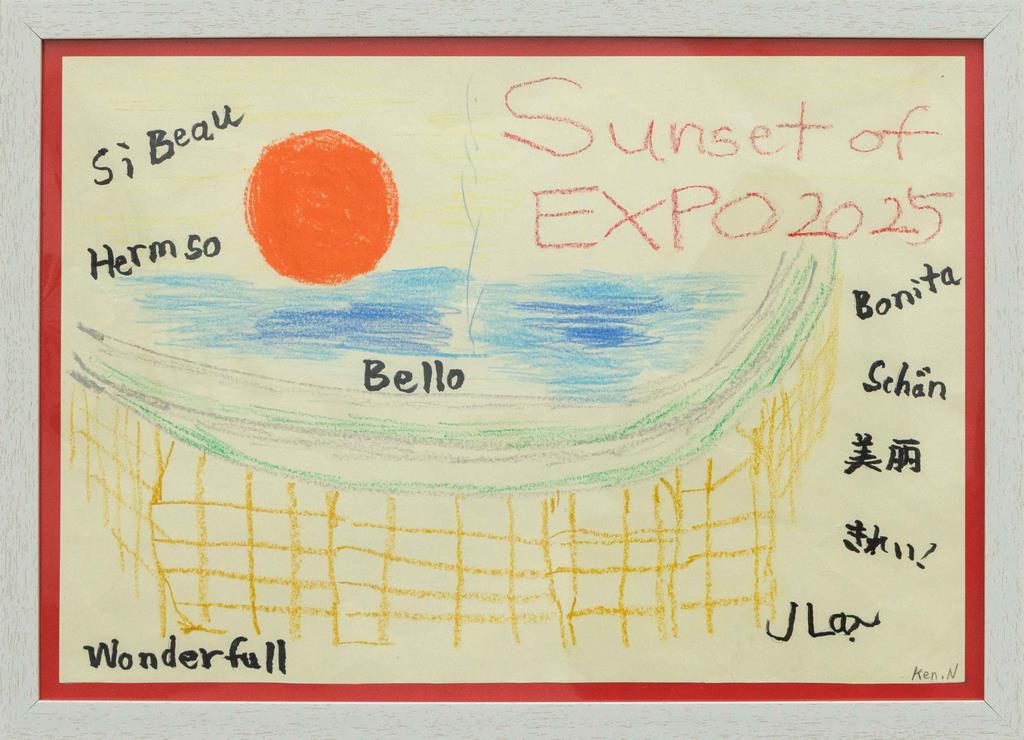 Sunset of
EXPO 2025
Si Beau
Hermso
Bello
Bonita
Schän
美丽
きれい!
Wonderfull
Ken.N